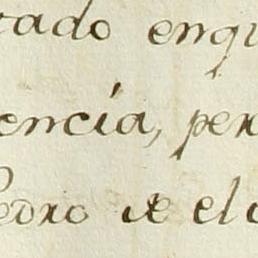 tado enqu
encia, per
Pedro de el